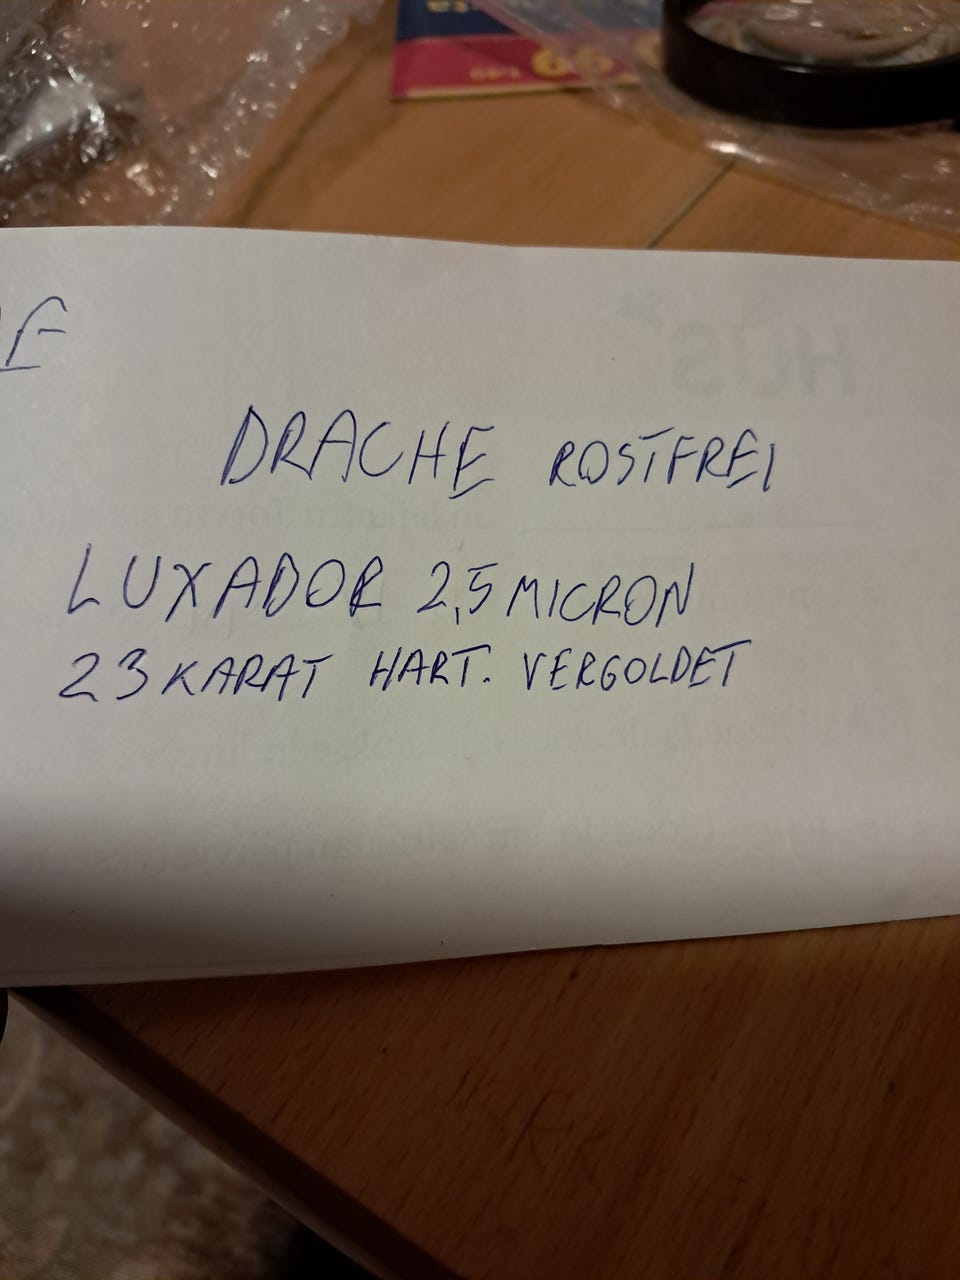 DRACHE ROSTFREI
LUXADOR 2,5 MICRON
23 KARAT HART. VERGOLDET
HUS